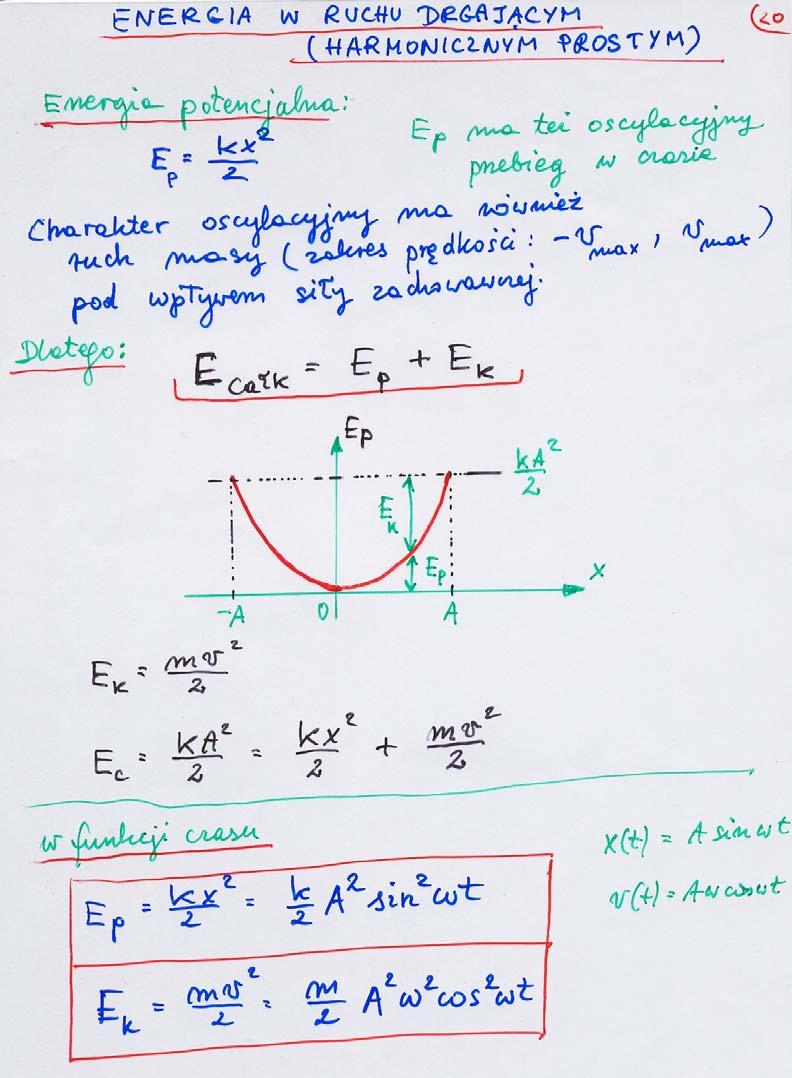 ENERGIA W RUCHU DRGAJĄCYM
(HARMONICZNYM PROSTYM)
20
Energia potencjalna:
E_p = kx²/2
E_p ma też oscylacyjny
przebieg w czasie
Charakter oscylacyjny ma również
ruch masy (zakres prędkości: -v_max, v_max)
pod wpływem siły zachowawczej.
Dlatego:
E_całk = E_p + E_k
E_p
kA²/2
E_k
E_p
x
-A 0 A
E_k = mv²/2
E_c = kA²/2 = kx²/2 + mv²/2
w funkcji czasu
x(t) = A sin ωt
v(t) = Aω cos ωt
E_p = kx²/2 = k/2 A² sin² ωt
E_k = mv²/2 = m/2 A² ω² cos² ωt